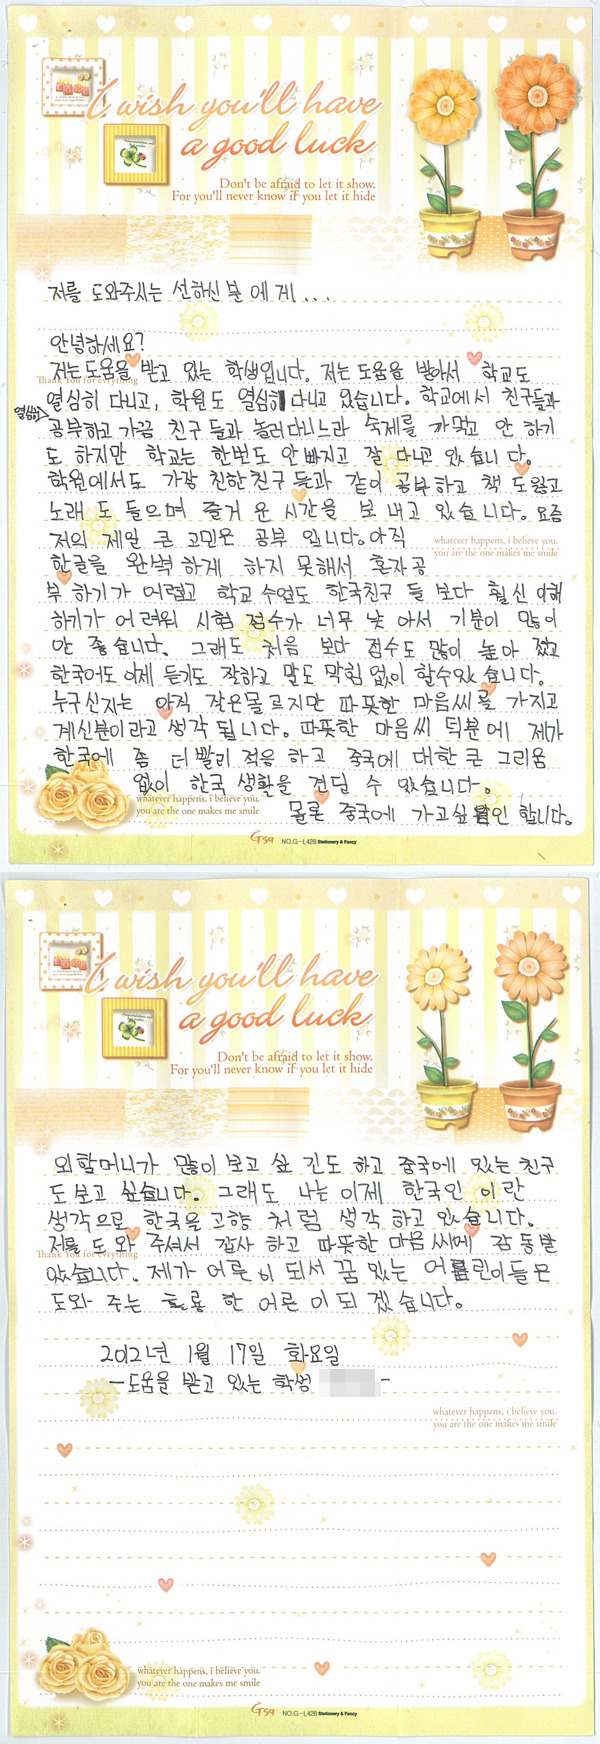 I wish you'll have
a good luck
Don't be afraid to let it show.
For you'll never know if you let it hide
저를 도와주시는 선하신 분 에 게...
안녕하세요?
저는 도움을 받고 있는 학생입니다. 저는 도움을 받아서 학교도
Thank You for evrything
열심히 다니고, 학원도 열심히 다니고 있습니다. 학교에서 친구들과
열심히
공부하고 가끔 친구 들과 놀러다니느라 숙제를 까먹고 안 하기
도 하지만 학교는 한번도 안 빠지고 잘 다니고 있습니다.
학원에서도 가장 친한 친구 들과 같이 공부하고 책 도 읽고
노래 도 들으며 즐거 운 시간을 보 내고 있습니다. 요즘
저의 제일 큰 고민은 공부 입니다. 아직
whatever happens, i believe you.
you are the one makes me smile
한글을 완벽 하게 하지 못해서 혼자 공
부 하기가 어렵고 학교 수업도 한국친구 들 보다 훨신 이해
하기가 어려워 시험 점수가 너무 낮 아서 기분이 많이
안 좋습니다. 그래도 처음 보다 점수도 많이 높아 졌고
한국어도 이제 듣기도 잘하고 말도 막힘 없이 할수있 습니다.
누구신지는 아직 잘은몰 르지만 따뜻한 마음씨를 가지고
계신분이라고 생각 됩니다. 따뜻한 마음씨 덕분에 제가
한국에 좀 더 빨리 적응 하고 중국에 대한 큰 그리움
없이 한국 생활을 견딜 수 있습니다.
whatever happens, i believe you.
you are the one makes me smile
물론 중국에 가고싶 합니다.
Gsa NO.G-L428 Stationery & Fancy
I wish you'll have
a good luck
Don't be afraid to let it show.
For you'll never know if you let it hide
외할머니가 많이 보고 싶 긴도 하고 중국에 있는 친구
도 보고 싶습니다. 그래도 나는 이제 한국인 이란
생각으로 한국을 고향 처럼 생각 하고 있습니다.
Thank You for evrything
저를 도 와 주셔서 감사 하고 따뜻한 마음씨에 감동받
았습니다. 제가 어른 이 되서 꿈 있는 어린이들은
도와 주는 훌륭 한 어른 이 되 겠습니다.
2012년 1월 17일 화요일
-도움을 받고 있는 학생 -
whatever happens, i believe you.
you are the one makes me smile
whatever happens, i believe you.
you are the one makes me smile
Gsa NO.G-L428 Stationery & Fancy